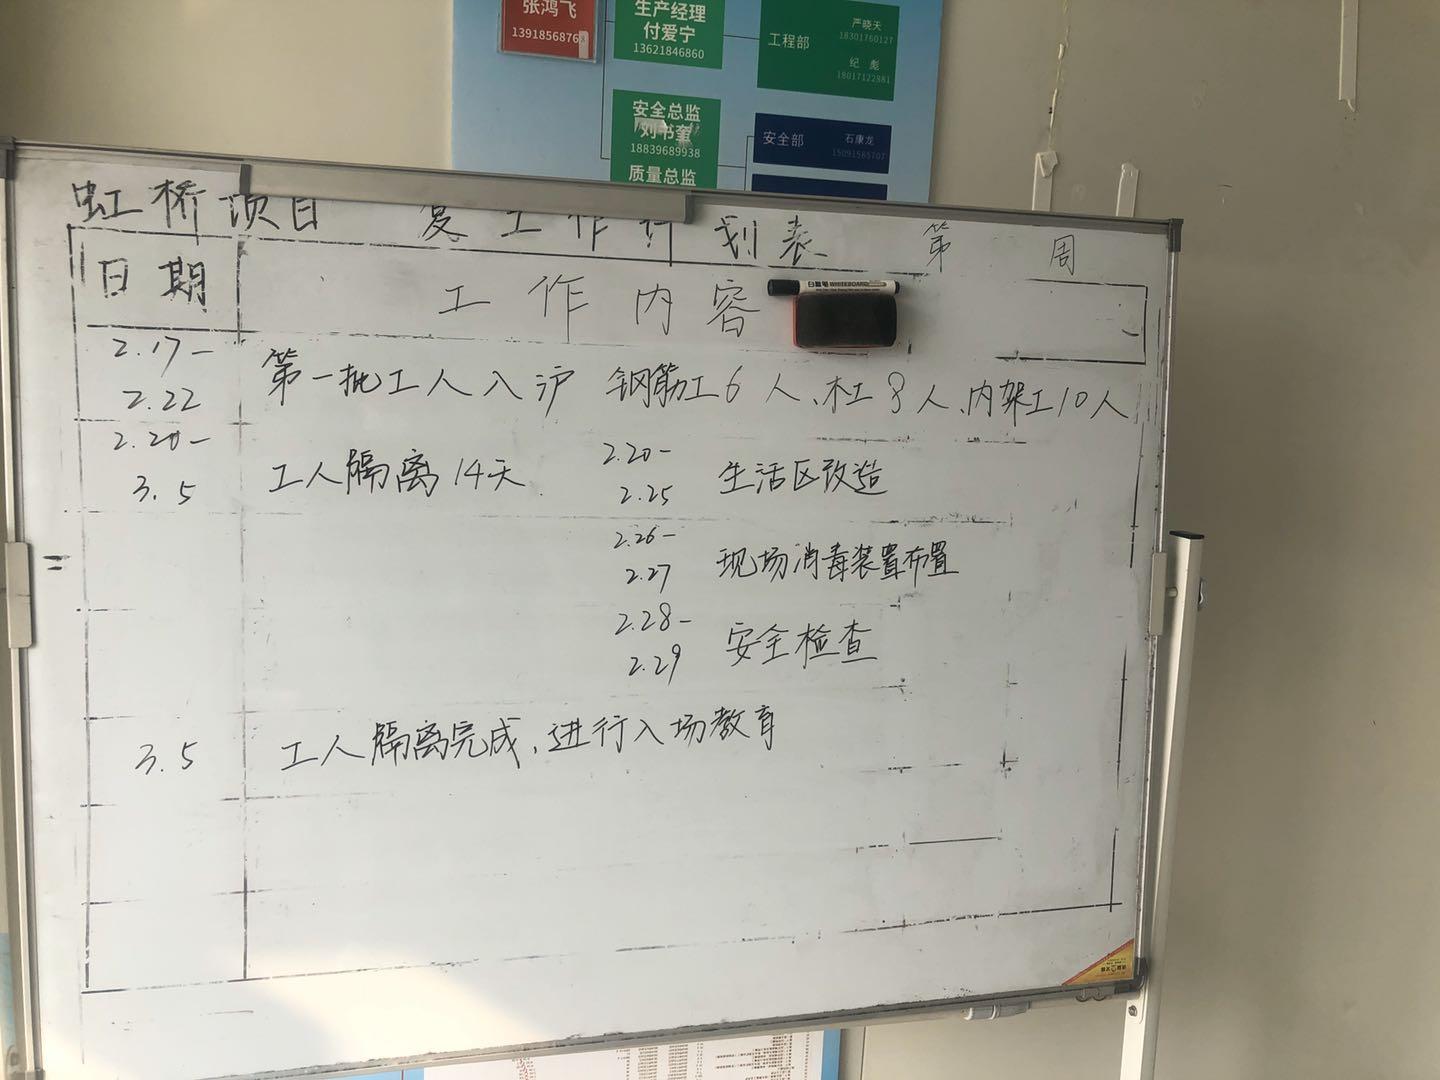 张鸿飞
1391856876
生产经理
付爱宁
13621846860
工程部
严晓天
18301760127
纪彪
18017122881
安全总监
刘书奎
18839689938
安全部
石康龙
15091585707
质量总监
虹桥项目 复工作计划表 第 周
日期 工作内容
白板笔 WHITEBOARD
2.17-
2.22
第一批工人入沪 钢筋工6人、木工8人、内架工10人
2.20-
3.5
工人隔离14天
2.20-
2.25
生活区改造
2.26-
2.27
现场消毒装置布置
2.28-
2.29
安全检查
3.5 工人隔离完成、进行入场教育